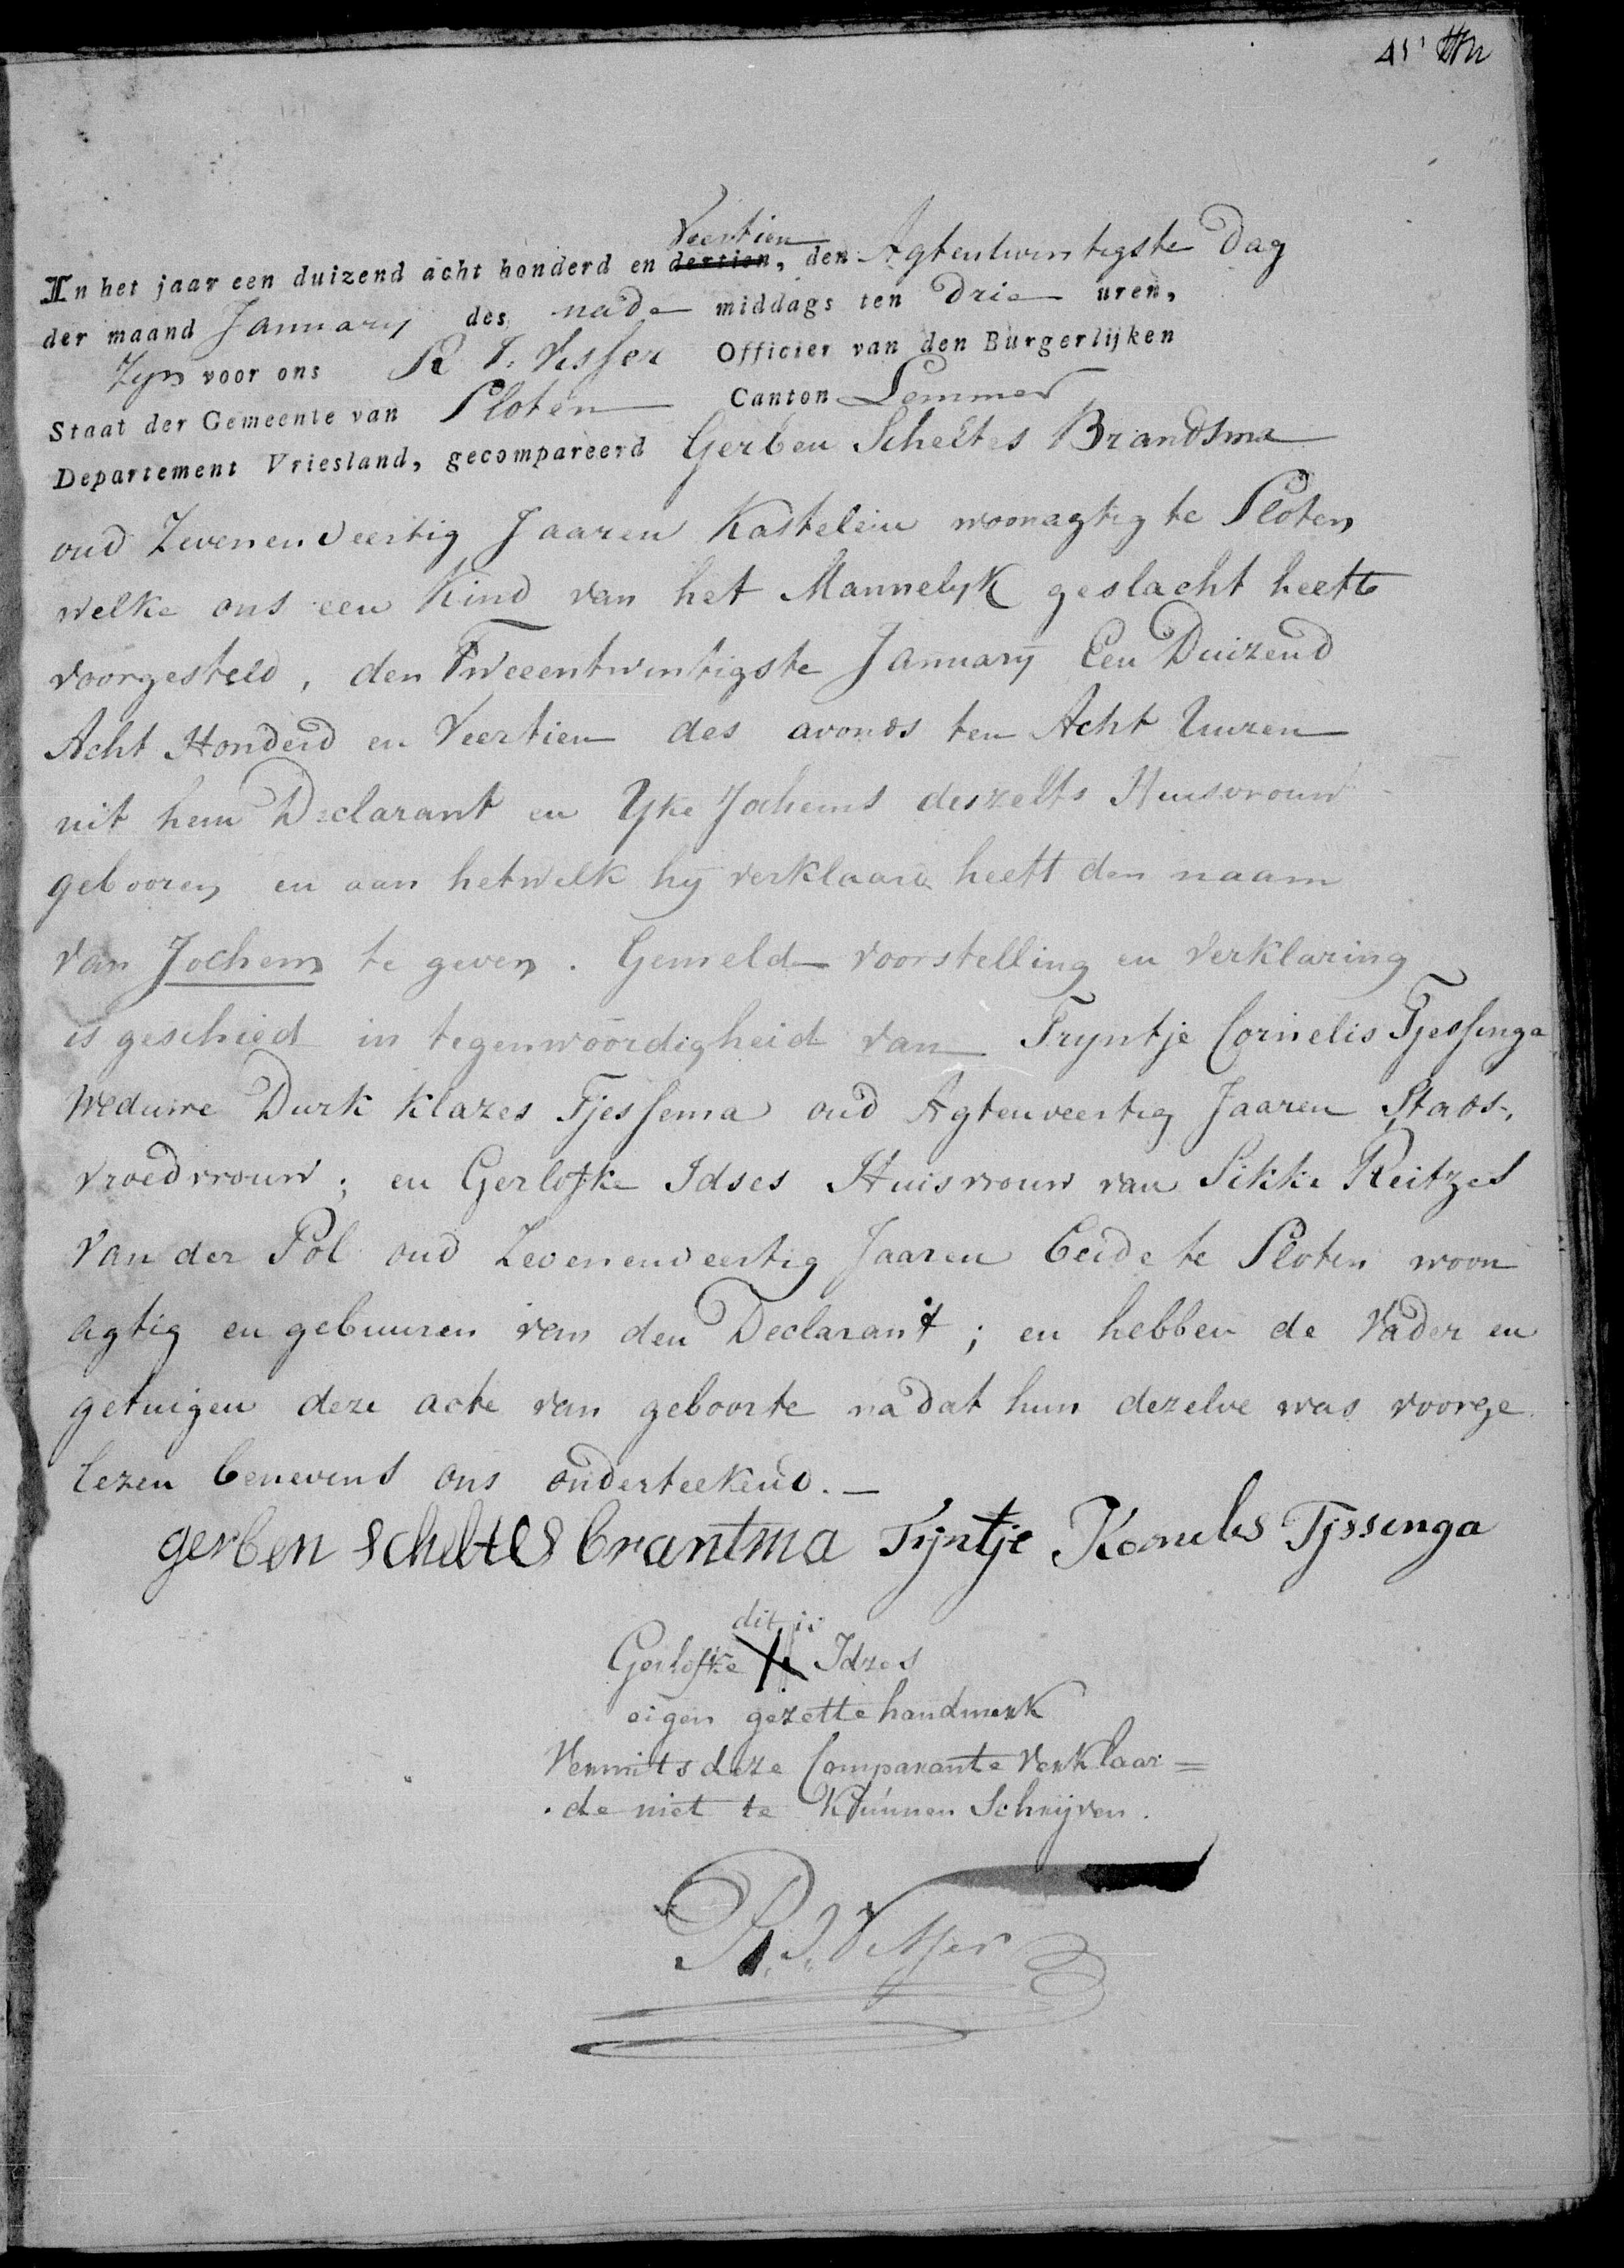 45
Veertien
In het jaar een duizend acht honderd en dertien, den Agtentwintigste Dag
der maand January des nade middags ten Drie uren,
Zyn voor ons R J. Visser Officier van den Burgerlijken
Staat der Gemeente van Sloten Canton Lemmer
Departement Vriesland, gecompareerd Gerben Scheltes Brandsma
oud Zevenenveertig Jaaren Kastelein woonagtig te Sloten
welke ons een Kind van het Mannelyk geslacht heeft
voorgesteld, den Tweeentwintigste January Een Duizend
Acht Honderd en Veertien des avonds ten Acht Uuren
uit hem Declarant en Yke Jochems deszelfs Huisvrouw
gebooren, en aan hetwelk hij verklaard heeft den naam
van Jochem te geven. Gemelde voorstelling en verklaring
is geschied in tegenwoordigheid van Tryntje Cornelis Tjessinga
Weduwe Durk Klazes Tjessema oud Agtenveertig Jaaren Stads-
vroedvrouw; en Gerlofke Idses Huisvrouw van Sikke Reitzes
van der Pol oud Zevenenveertig Jaaren beide te Sloten woon
agtig en gebuuren van den Declarant; en hebben de Vader en
getuigen deze acte van geboorte na dat hun dezelve was voorge
lezen benevens ons onderteekend. —
gerben scheltes brantma Tijntje Kornelis Tjssenga
dit is
Gerlofke X Idzes
eigen gezette handmerk
Vermits deze Comparante verklaar=
de niet te Kunnen Schrijven.
R. J. Visser